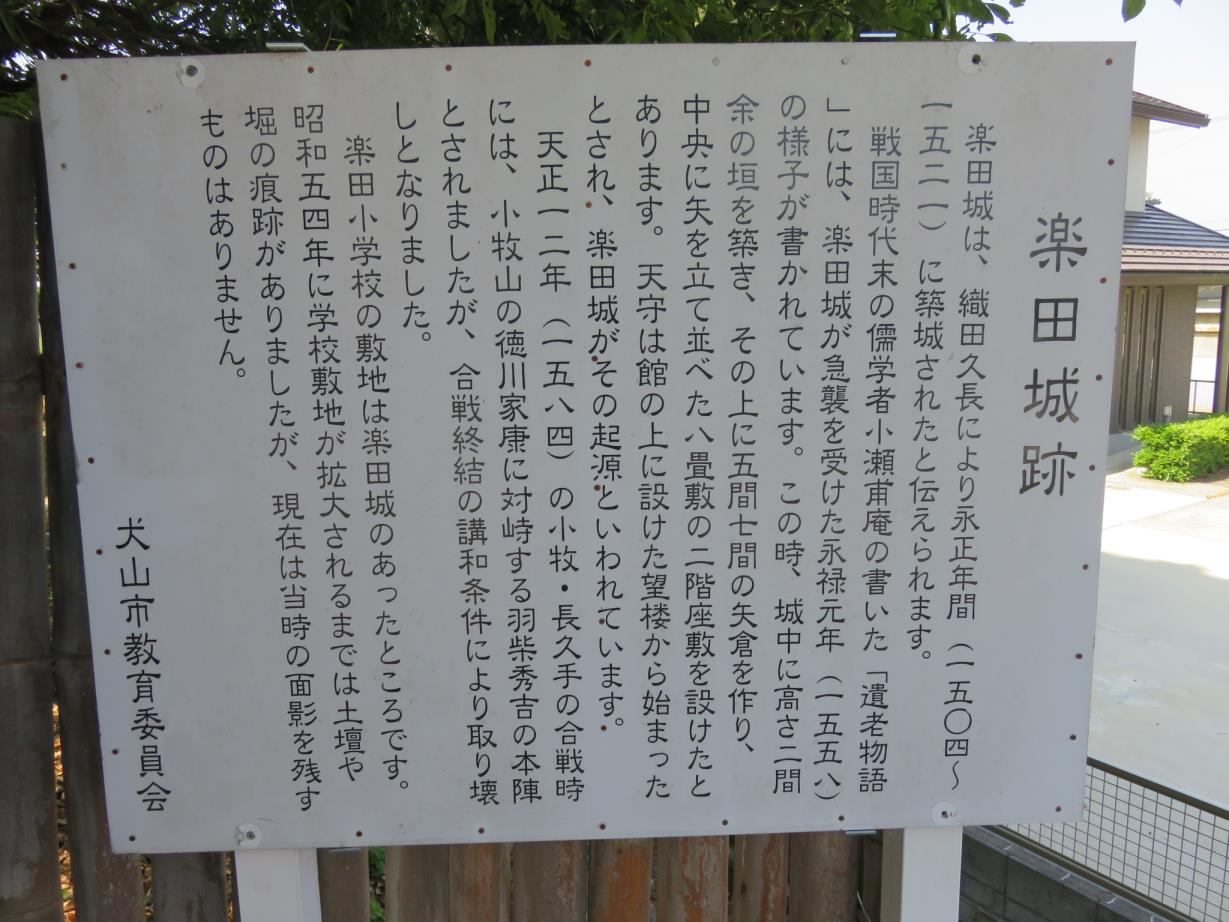 楽田城跡
楽田城は、織田久長により永正年間（一五〇四～
一五二一）に築城されたと伝えられます。
戦国時代末の儒学者小瀬甫庵の書いた「遺老物語
」には、楽田城が急襲を受けた永禄元年（一五五八）
の様子が書かれています。この時、城中に高さ二間
余の垣を築き、その上に五間七間の矢倉を作り、
中央に矢を立て並べた八畳敷の二階座敷を設けたと
あります。天守は館の上に設けた望楼から始まった
とされ、楽田城がその起源といわれています。
天正一二年（一五八四）の小牧・長久手の合戦時
には、小牧山の徳川家康に対峙する羽柴秀吉の本陣
とされましたが、合戦終結の講和条件により取り壊
しとなりました。
楽田小学校の敷地は楽田城のあったところです。
昭和五四年に学校敷地が拡大されるまでは土壇や
堀の痕跡がありましたが、現在は当時の面影を残す
ものはありません。
犬山市教育委員会